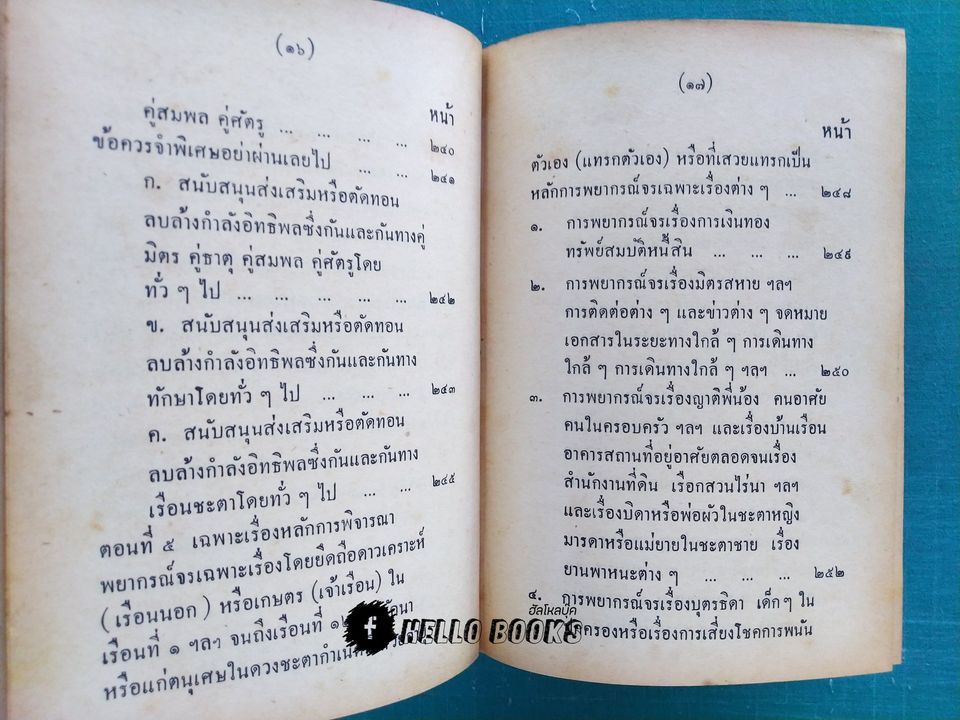 (๑๖)
หน้า
คู่สมพล คู่ศัตรู ... ... ... ... ๒๔๐
ข้อควรจำพิเศษอย่าผ่านเลยไป ... ... ๒๔๑
ก. สนับสนุนส่งเสริมหรือตัดทอน
ลบล้างกำลังอิทธิพลซึ่งกันและกันทางคู่
มิตร คู่ธาตุ คู่สมพล คู่ศัตรูโดย
ทั่ว ๆ ไป ... ... ... ... ... ๒๔๒
ข. สนับสนุนส่งเสริมหรือตัดทอน
ลบล้างกำลังอิทธิพลซึ่งกันและกันทาง
ทักษาโดยทั่ว ๆ ไป ... ... ... ๒๔๓
ค. สนับสนุนส่งเสริมหรือตัดทอน
ลบล้างกำลังอิทธิพลซึ่งกันและกันทาง
เรือนชะตาโดยทั่ว ๆ ไป ... ... ๒๔๕
ตอนที่ ๕ เฉพาะเรื่องหลักการพิจารณา
พยากรณ์จรเฉพาะเรื่องโดยยึดถือดาวเคราะห์
(เรือนนอก) หรือเกษตร (เจ้าเรือน) ใน
เรือนที่ ๑ ฯลฯ จนถึงเรือนที่
หรือแก่ตนุเศษในดวงชะตากำเนิด
(๑๗)
หน้า
ตัวเอง (แทรกตัวเอง) หรือที่เสวยแทรกเป็น
หลักการพยากรณ์จรเฉพาะเรื่องต่าง ๆ ... ๒๔๘
๑. การพยากรณ์จรเรื่องการเงินทอง
ทรัพย์สมบัติหนี้สิน ... ... ... ๒๔๙
๒. การพยากรณ์จรเรื่องมิตรสหาย ฯลฯ
การติดต่อต่าง ๆ และข่าวต่าง ๆ จดหมาย
เอกสารในระยะทางใกล้ ๆ การเดินทาง
ใกล้ ๆ การเดินทางใกล้ ๆ ฯลฯ ... ๒๕๐
๓. การพยากรณ์จรเรื่องญาติพี่น้อง คนอาศัย
คนในครอบครัว ฯลฯ และเรื่องบ้านเรือน
อาคารสถานที่อยู่อาศัยตลอดจนเรื่อง
สำนักงานที่ดิน เรือกสวนไร่นา ฯลฯ
และเรื่องบิดาหรือพ่อผัวในชะตาหญิง
มารดาหรือแม่ยายในชะตาชาย เรื่อง
ยานพาหนะต่าง ๆ ... ... ... ๒๕๒
๔. การพยากรณ์จรเรื่องบุตรธิดา เด็กๆ ใน
ปกครองหรือเรื่องการเสี่ยงโชคการพนัน
ฮัลโหลบุ๊ค
f HELLO BOOKS